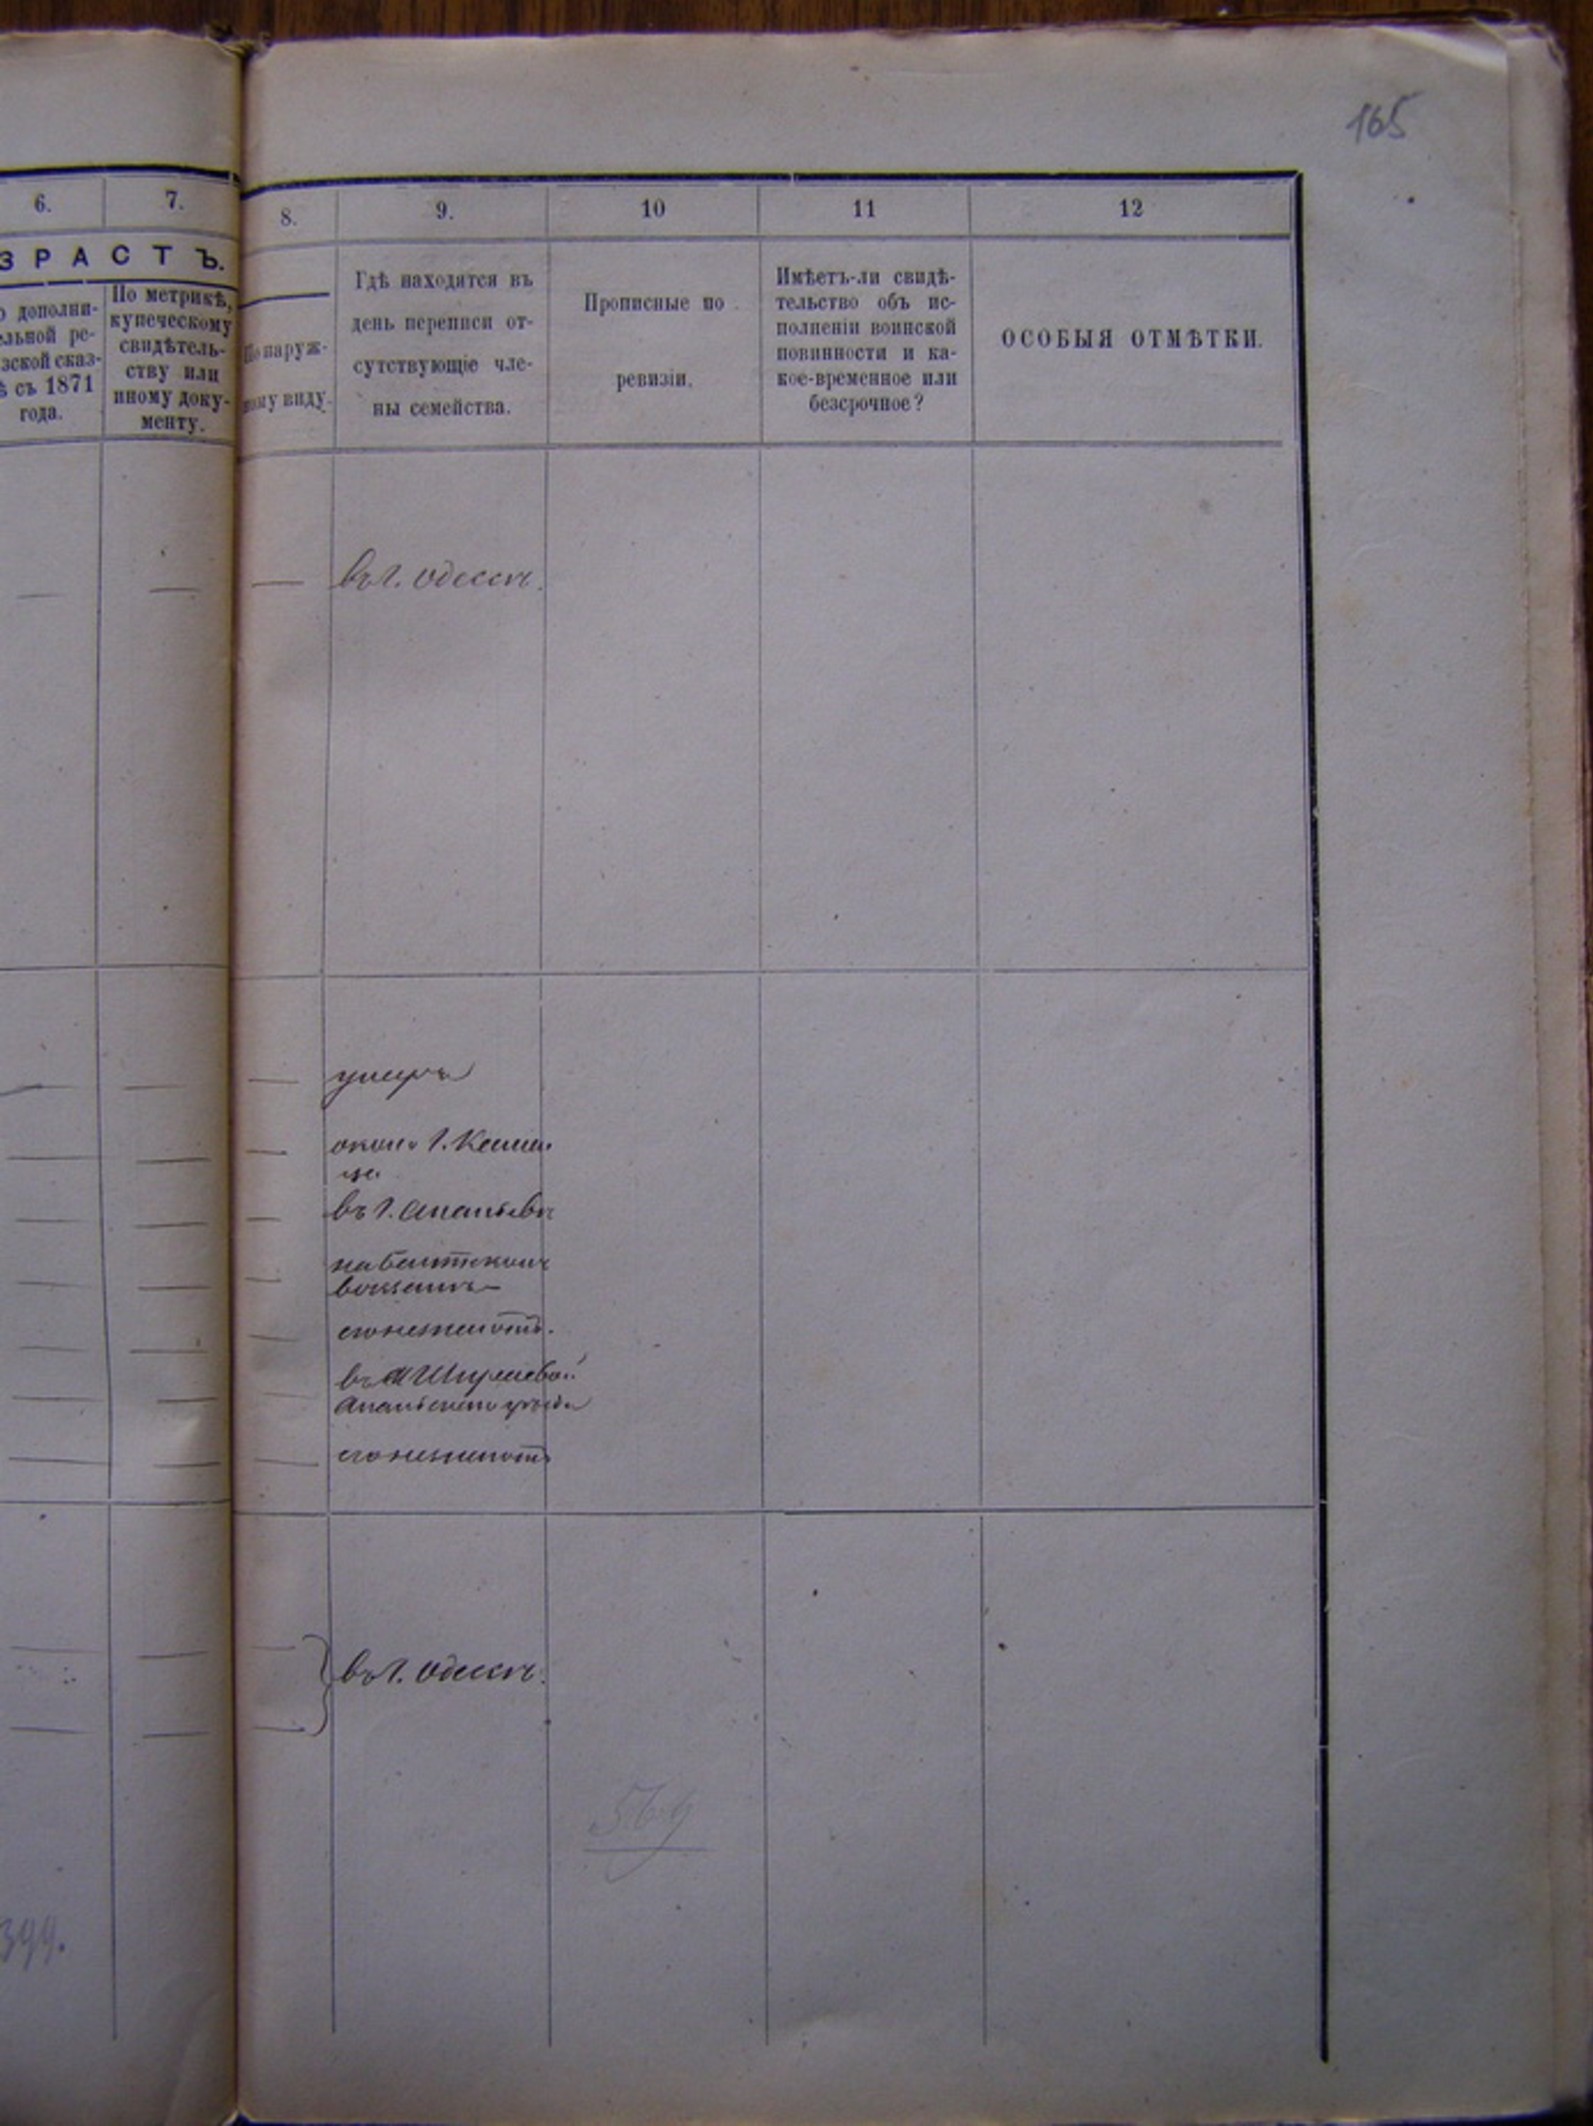 165
6. 7. 8. 9. 10 11 12
ЗРАСТЪ.
о дополни-
ельной ре-
зской сказ-
ѣ съ 1871
года.
По метрикѣ,
купеческому
свидѣтель-
ству или
иному доку-
менту.
По наруж-
ному виду.
Гдѣ находятся въ
день переписи от-
сутствующіе чле-
ны семейства.
Прописные по
ревизіи.
Имѣетъ-ли свидѣ-
тельство объ ис-
полненіи воинской
повинности и ка-
кое-временное или
безсрочное?
ОСОБЫЯ ОТМѢТКИ.
въ г. Одессѣ.
умеръ
около г.
въ г. Ананьевѣ
на Балтскомъ
вокзалѣ
въ
Ананьевскаго уѣзда
въ г. Одессѣ.
569
399.